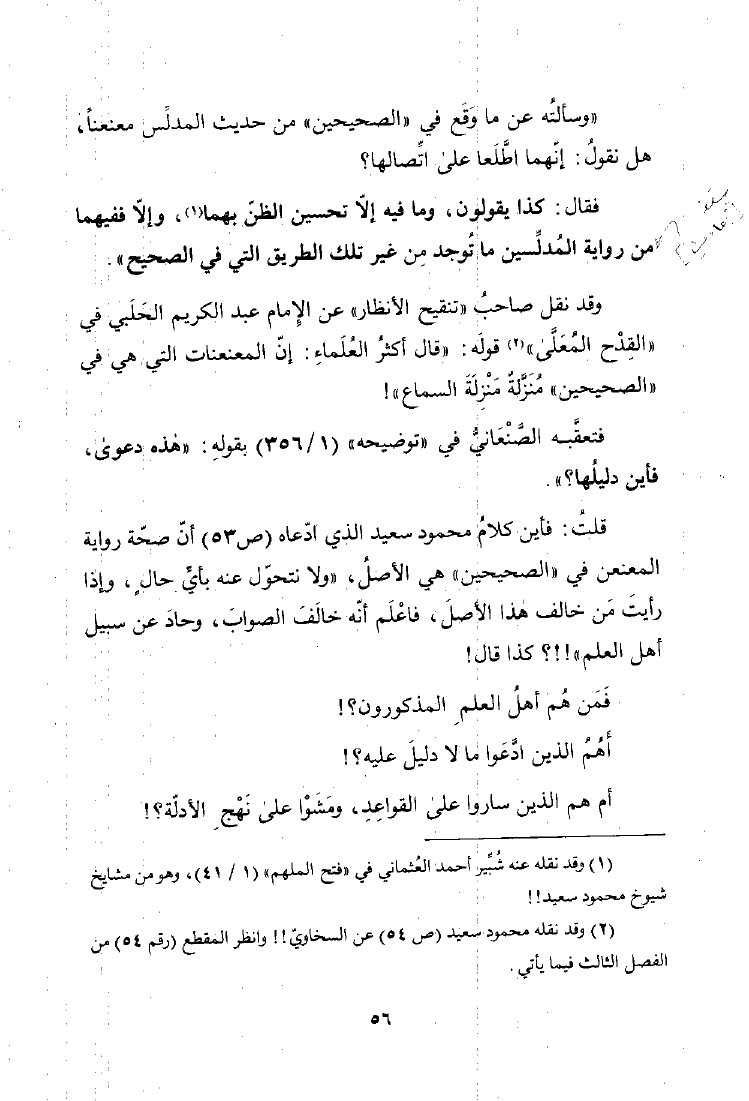 «وسألتُه عن ما وَقَع في «الصحيحين» من حديث المدلِّس معنعناً،
هل نقولُ: إنّهما اطَّلَعا علىٰ اتِّصالها؟
فقال: كذا يقولون، وما فيه إلاّ تحسين الظنّ بهما(١)، وإلاّ ففيهما
من رواية المُدلِّسين ما تُوجد مِن غير تلك الطريق التي في الصحيح».
وقد نقل صاحبُ «تنقيح الأنظار» عن الإمام عبد الكريم الحَلَبي في
«القِدْح المُعَلَّىٰ»(٢) قولَه: «قال أكثرُ العُلَماءِ: إنّ المعنعنات التي هي في
«الصحيحين» مُنَزَّلةٌ مَنْزِلَةَ السماع»!
فتعقَّبه الصَّنْعَانيُّ في «توضيحه» (١/٣٥٦) بقولهِ: «هٰذه دعوىٰ،
فأين دليلُها؟».
قلتُ: فأين كلامُ محمود سعيد الذي ادّعاه (ص٥٣) أنّ صحّة رواية
المعنعن في «الصحيحين» هي الأصلُ، «ولا نتحوّل عنه بأيِّ حالٍ، وإذا
رأيتَ مَن خالف هٰذا الأصلَ، فاعْلَم أنه خالَفَ الصوابَ، وحادَ عن سبيل
أهل العلم»!!؟ كذا قال!
فَمَن هُم أهلُ العلمِ المذكورون؟!
أَهُمُ الذين ادَّعَوا ما لا دليلَ عليه؟!
أم هم الذين ساروا علىٰ القواعِدِ، ومَشَوْا علىٰ نَهْجِ الأدلّة؟!
(١) وقد نقله عنه شُبِّير أحمد العُثماني في «فتح الملهم» (١ / ٤١)، وهو من مشايخ
شيوخ محمود سعيد!!
(٢) وقد نقله محمود سعيد (ص ٥٤) عن السخاويّ!! وانظر المقطع (رقم ٥٤) من
الفصل الثالث فيما يأتي.
٥٦